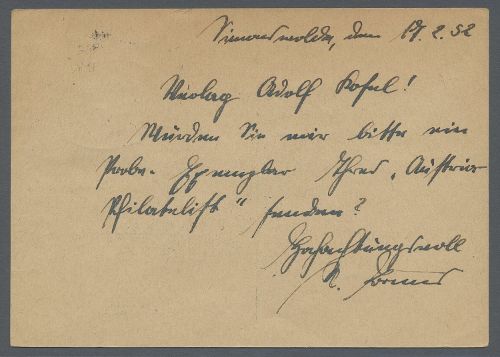 Simonswolde, den 17.2.52
Verlag Adolf Kosel!
Würden Sie mir bitte ein
Probe-Exemplar Ihres „Austria
Philatelist“ senden?
Hochachtungsvoll